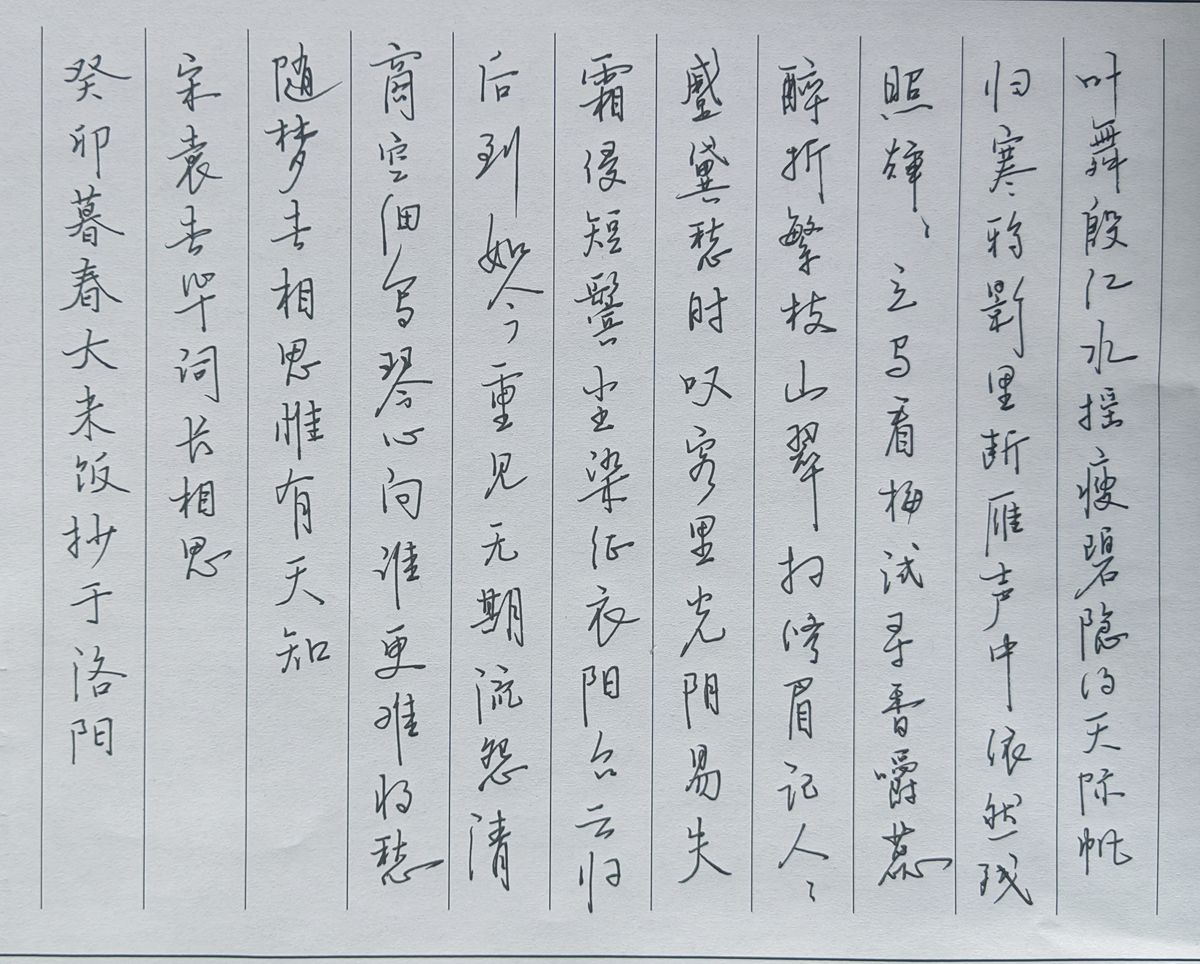 叶舞殷红水摇瘦碧隐约天际帆
归寒鸦影里断雁声中依然残
照辉、立马看梅试寻香嚼蕊
醉折繁枝山翠扫修眉记人、
蹙黛愁时叹客里光阴易失
霜侵短鬓尘染征衣阳台云归
后到如今重见无期流怨清
商空细写琴心向谁更难将愁
随梦去相思惟有天知
宋袁去华词长相思
癸卯暮春大米饭抄于洛阳